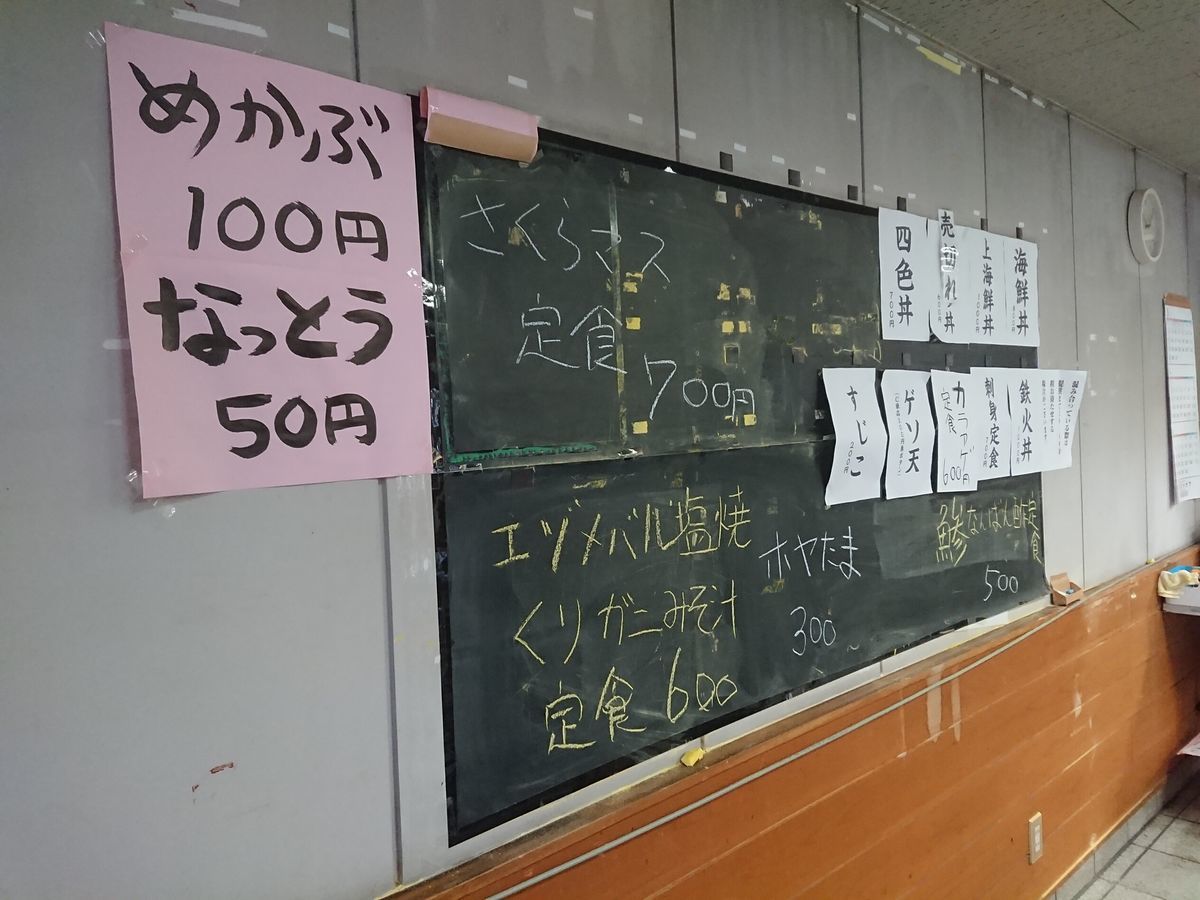 めかぶ
100円
なっとう
50円
さくらマス
定食
700円
四色丼
700円
売切れ
丼
上海鮮丼
海鮮丼
すじこ
200円
ゲソ天
カラアゲ
定食
600円
刺身定食
700円
鉄火丼
混み合っている際は
エゾメバル塩焼
くりガニみそ汁
定食 600
ホヤたま
300
鯵なんばん酢定食
500